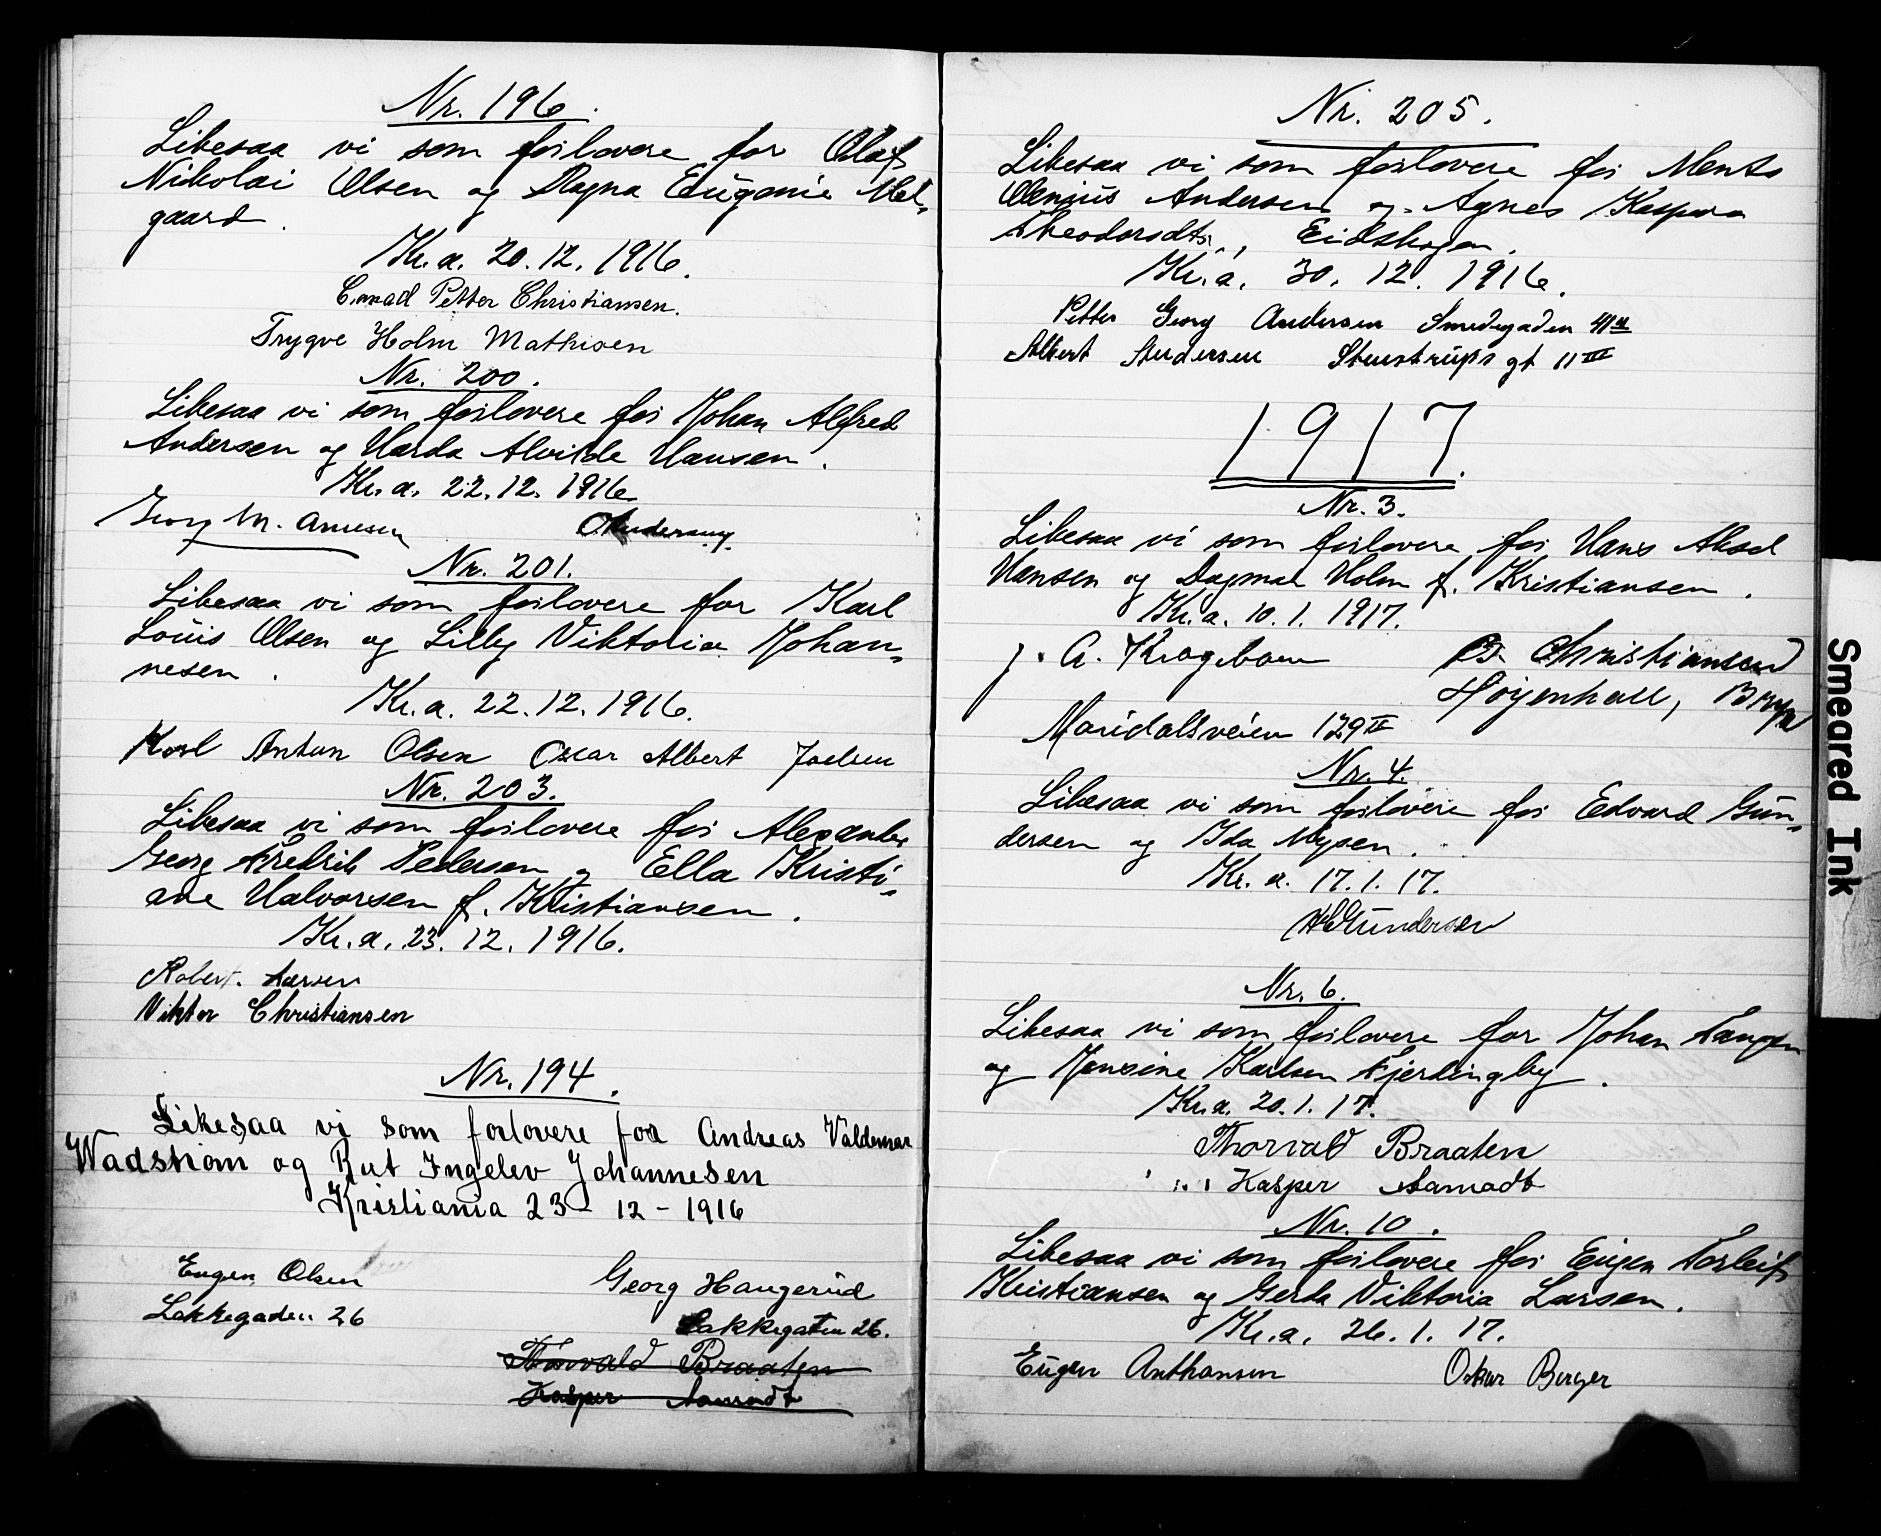 Nr. 196.
Likesaa vi som forlovere for Olaf
Nikolai Olsen og Magna Eugenie Mel-
gaard.
Kr.a. 20.12.1916.
Conrad Petter Christiansen.
Trygve Holm Mathisen
Nr. 200.
Likesaa vi som forlovere for Johan Alfred
Andersen og Harda Alvilde Hansen.
Kr.a. 22.12.1916.
Georg M. Arnesen
Nr. 201.
Likesaa vi som forlovere for Karl
Louis Olsen og Lilly Viktoria Johan-
nesen.
Kr.a. 22.12.1916.
Karl Anton Olsen Oscar Albert Joelsen
Nr. 203.
Likesaa vi som forlovere for Alexander
Georg Fredrik Pedersen og Ella Kristi-
ane Halvorsen f. Kristiansen.
Kr.a. 23.12.1916.
Robert. Larsen
Viktor Christiansen
Nr. 194.
Likesaa vi som forlovere for Andreas Valdemar
Wadstrøm og Rut Ingelev Johannesen
Kristiania 23 - 12 - 1916
Eugen Olsen Georg Haugerud
Lakkegaden 26 Lakkegaten 26.
Thorvald Braaten
Kasper Aamodt
Nr. 205.
Likesaa vi som forlovere for Ments
Olenius Andersen og Agnes Kaspara
Theodorsdtr., Eidskogen.
Kr.a. 30.12.1916.
Petter Georg Andersen Smedegaden 41
Albert Andersen Stenstrups gt 11 III
1917.
Nr. 3.
Likesaa vi som forlovere for Hans Aksel
Hansen og Dagmar Holm f. Kristiansen.
Kr.a. 10.1.1917.
J. A. Kragebom Christiansen
Høyenhall, Bryn
Maridalsveien 129 IV
Nr. 4.
Likesaa vi som forlovere for Edvard Gun-
dersen og Ida Mysen.
Kr.a. 17.1.17.
Gundersen
Nr. 6.
Likesaa vi som forlovere for Johan Tangen
og Jensine Karlsen Fjerdingby.
Kr.a. 20.1.17.
Thorvald Braaten
Kasper Aamodt
Nr. 10.
Likesaa vi som forlovere for Eugen Torleif
Kristiansen og Gerda Viktoria Larsen.
Kr.a. 26.1.17.
Eugen Anthonsen Oskar Berger
Smeared Ink